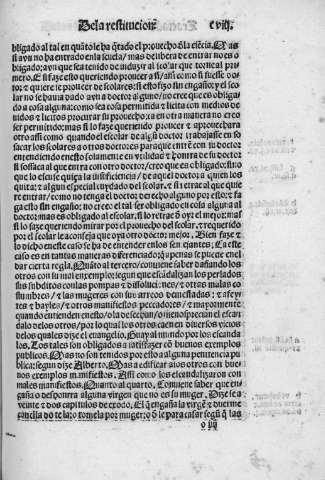 De la restitucion. cviij.
bligado al tal en quãto le ha q̃tado el prouecho d̃ la esciẽcia. Mas
si avn no ha entrado en la scuela/ mas delibera de entrar no es o
bligado/ avn que sea tenido de induzir al scolar que torne al pri
mero. E si faze esto queriendo prouecer a si/ assi como si fuesse do
tor z quiere le proueer de scolares: si esto fizo sin engaño/ y el scolar
no se hauia dado avn a doctor alguno/ no creo que es obliga
do a cosa alguna: como sea cosa permitida z licita con medios de
uidos z licitos procurar su prouecho: ca en otra manera no creo
ser permitido: mas si lo faze queriendo proueer z aprouechara
otro assi como quando el scolar de algũ doctor trabajasse en so
sacar los scolares a otros doctores paraque entrẽ con su doctor
entendiendo en esto solamente en vtilidad z honra de su doctor
si sossaca al que entra con otro doctor/ creo que es obligado: sino
que lo escuse quiça la insuficiencia/ de aquel doctor a quien los
quita: z algun especial cuydado del scolar. E si retrae al que quie
re entrar/ como no tenga el doctor derecho alguno por esto: z fa
ga esto sin engaño: no creo el tal ser obligado a cosa alguna al
doctor: mas es obligado al escolar. si lo retrae d̃ oyr el mejor: mas
si lo faze queriendo mirar por el prouecho del scolar. z requerido
por el scolar le aconseja que oya otro doctor mejor. Bien faze z
lo dicho en este caso se ha de entender en los semejantes. Ca este
caso es en tantas maneras diferenciado: q̃ apenas se puede en el
dar cierta regla. Quãto al tercero/ conuiene saber dañando los
otros con su mal exemplo: segun que escãdalizan los perlados
sus subditos con las pompas z dissoluciones/ z otras malas co
stumbres/ z las mugeres con sus arreos deuestadas: z afey
tes z bayles/ z otros manifiestos peccadores/ z mayormente
quando entienden en esto/ o la dessean/ o menosprecian el escan
dalo de los otros/ por lo qual los otros caen en diuersos vicios
de los quales dize el euangelio. Guay al mundo por los escanda
los. Los tales son obligados a satisfazer cõ buenos exemplos
publicos. Mas no son tenidos por esto a alguna penitencia pu
blica: segun dize Alberto. Mas a edificar a los otros con bue
nos exemplos manifiestos. Assi como los escandalizaron con
males manifiestos. Quanto al quarto. Conuiene saber que en
gaña o desponrra alguna virgen que no es su muger. Dize se a
veinte z dos capitulos de exodo. El q̃ engaña la virgẽ z duerme
con ella do te la: o tome la por muger: o le para casar segũ q̃ las
o iiij